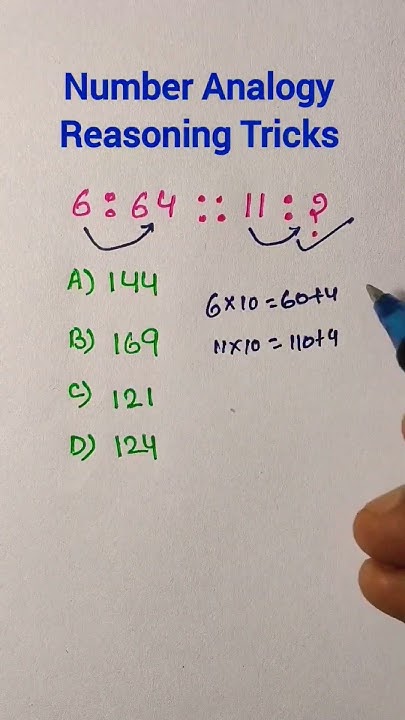 Number Analogy
Reasoning Tricks
6 : 64 :: 11 : ?
A) 144
6×10 = 60+4
B) 169
11×10 = 110+4
C) 121
D) 124